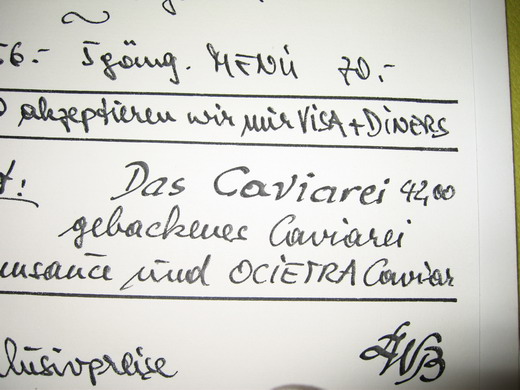 56.- 5gäng. MENÜ 70.-
akzeptieren wir nur VISA + DINERS
Das Caviarei 42,00
gebackenes Caviarei
und OCIETRA Caviar
lusivpreise